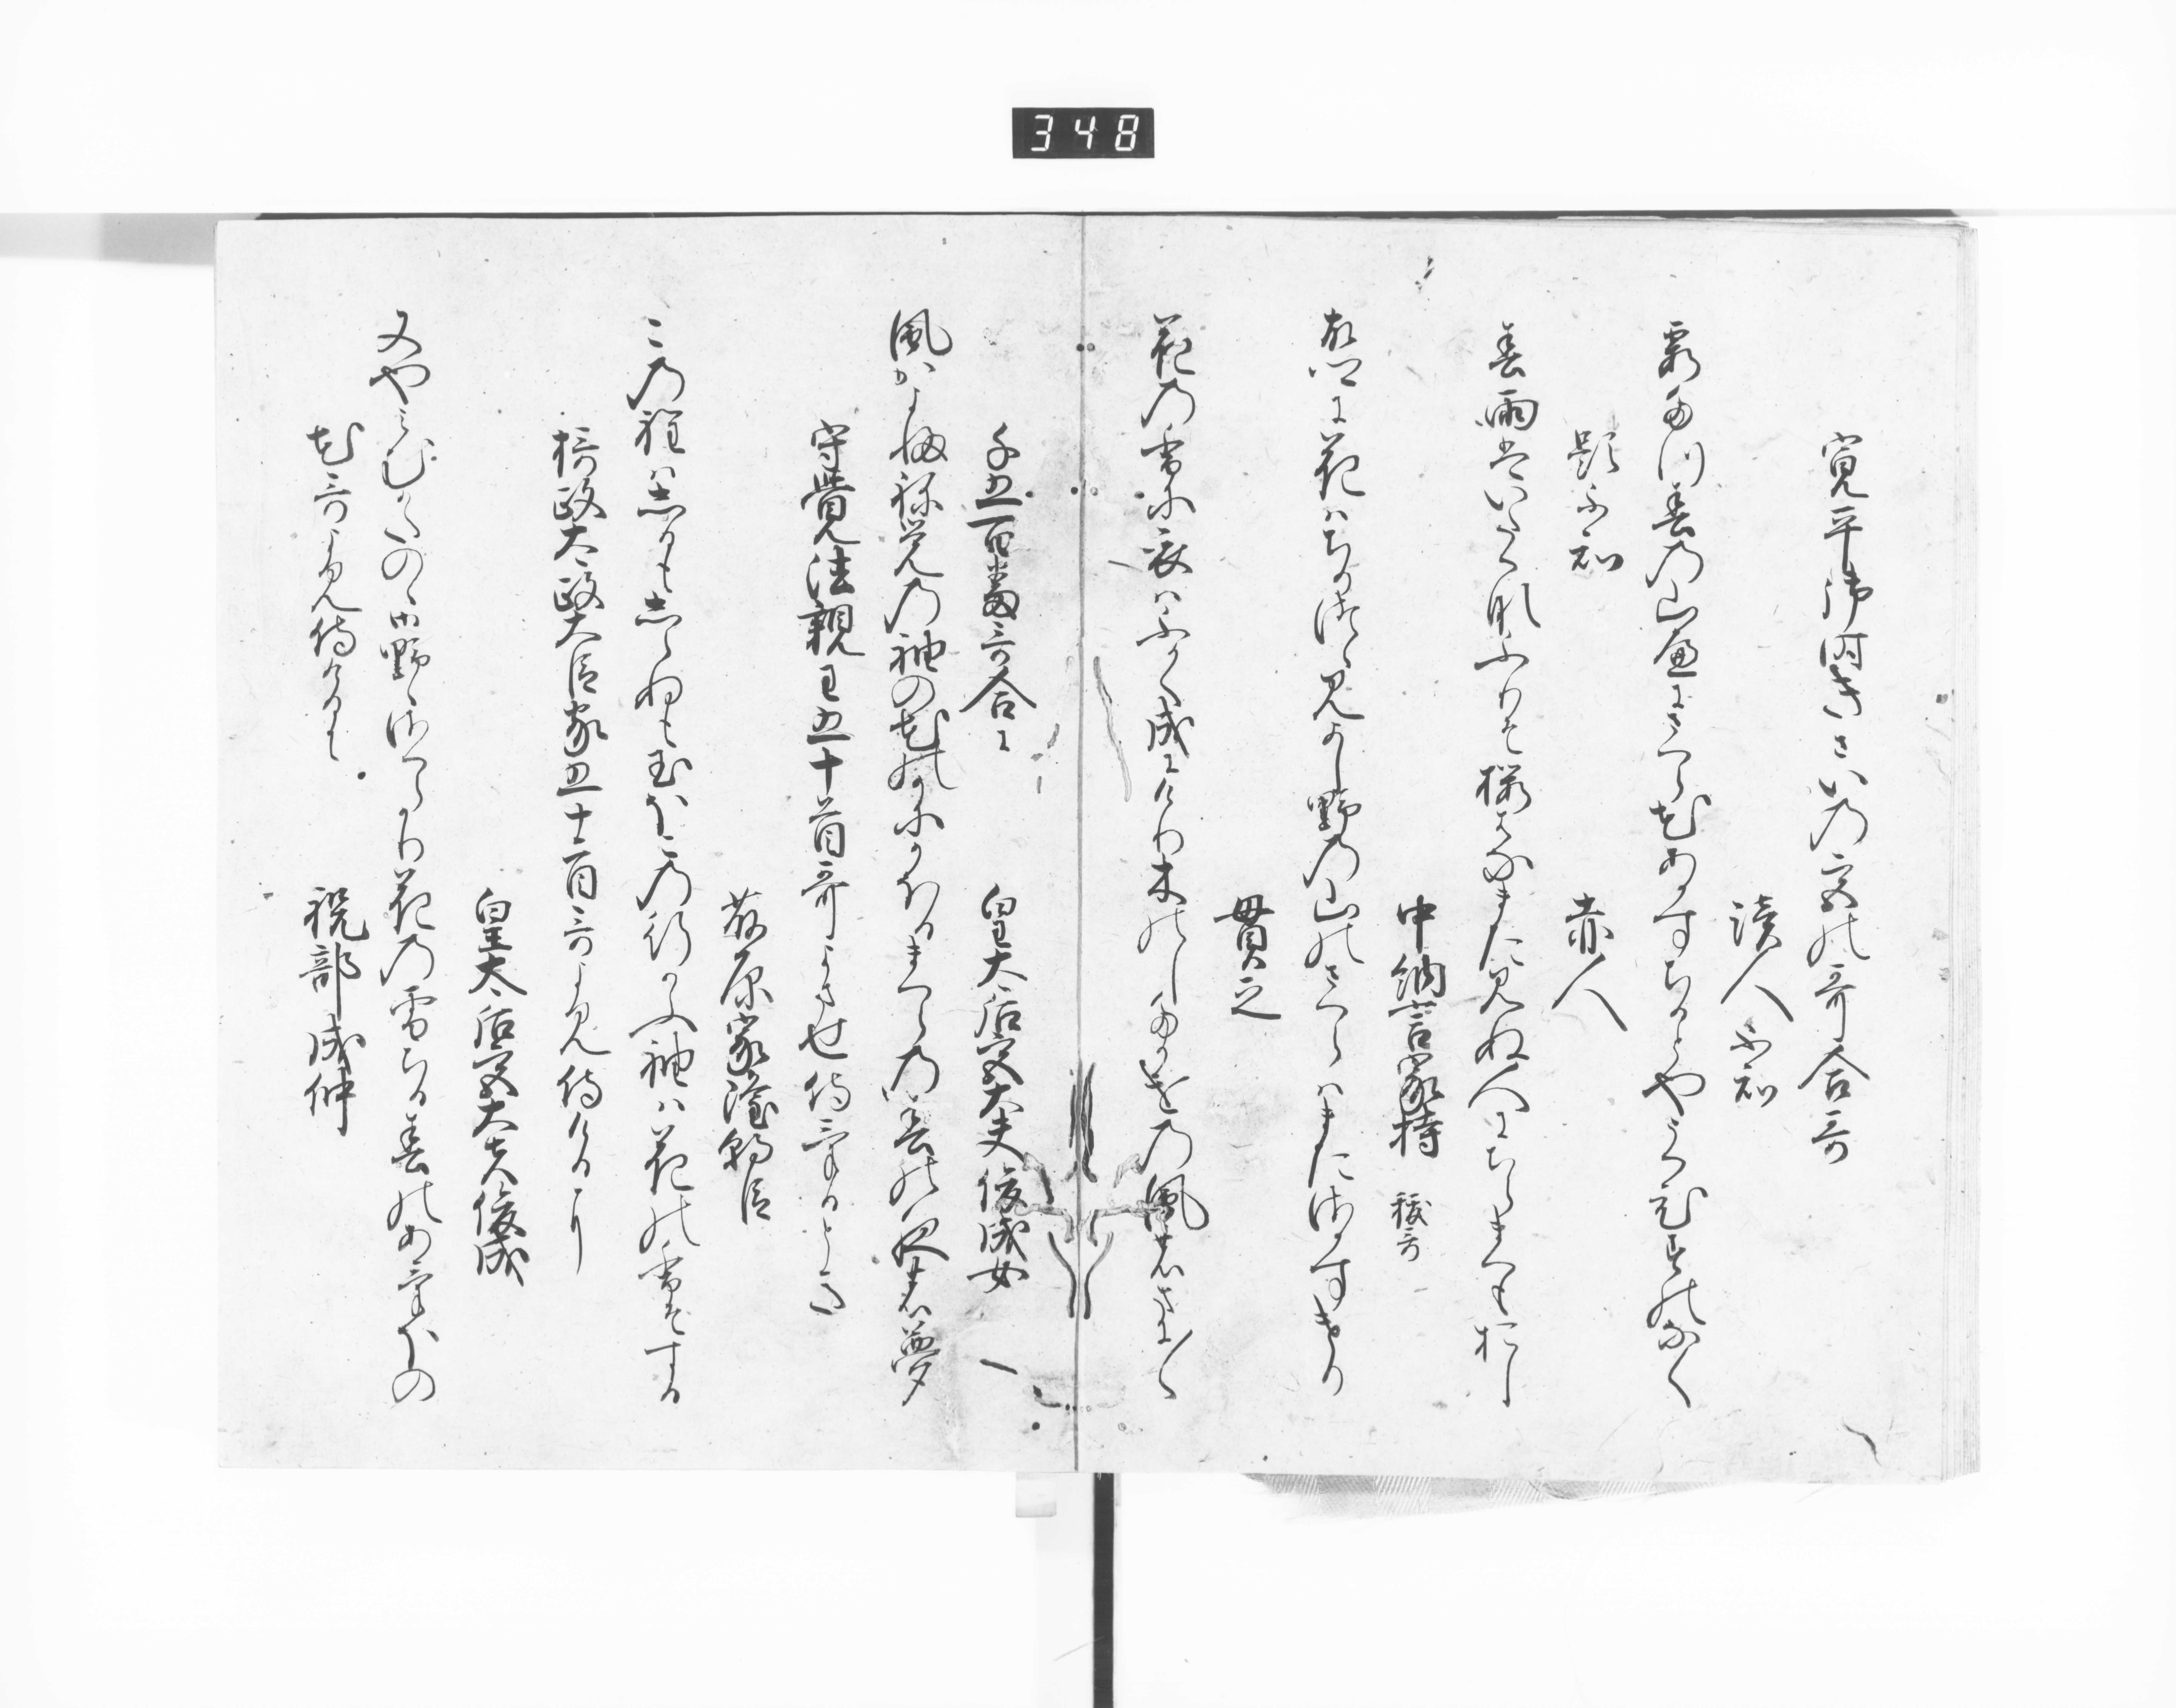 348
寛平御時きさいの宮の哥合哥
読人不知
霞たつ春の山へにさくら花あかすちるとやうくひすのなく
題不知
赤人
春雨はいたくなふりそ桜花また見ぬ人にちらまくもおし
中納言家持
故郷に花はちりつゝみよし野の山のさくらはまたさかすけり
貫之
花の香に衣はふかく成にけり木のしたかけの風のまに〳〵
千五百番哥合に
皇太后宮大夫俊成女
風かよふね覚の袖の花のかにかほるまくらの春の夜の夢
守覚法親王五十首哥よませ侍けるとき
藤原家隆朝臣
この程はしるもしらぬも玉ほこの行かふ袖は花の香そする
摂政太政大臣家五十首哥よみ侍けるに
皇太后宮大夫俊成
又やみむかたのゝみ野ゝさくらかり花の雪ちる春のあけほの
花哥よみ侍けるに
祝部成仲